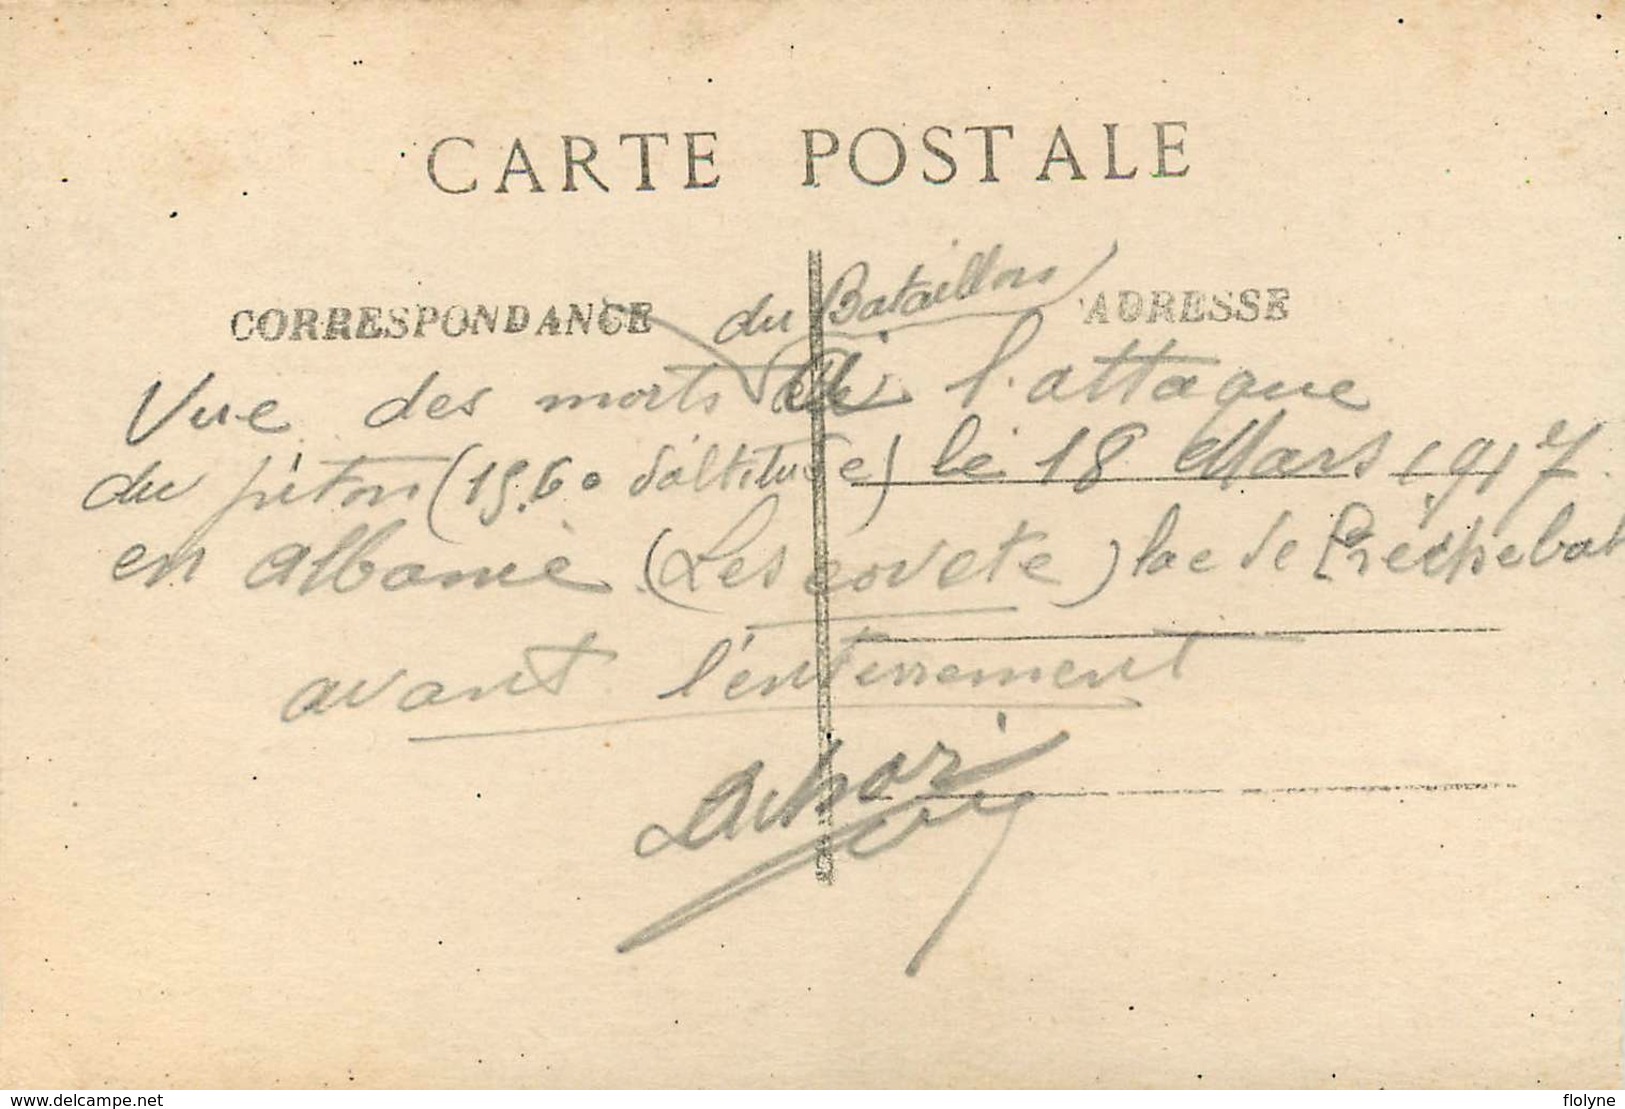 CARTE POSTALE
CORRESPONDANCE
ADRESSE
du Bataillon
Vue des morts de l'attaque
du piton (1560 d'altitude) le 18 Mars 1917
en Albanie (Leskovete) lac de
avant l'enterrement
www.delcampe.net
flolyne